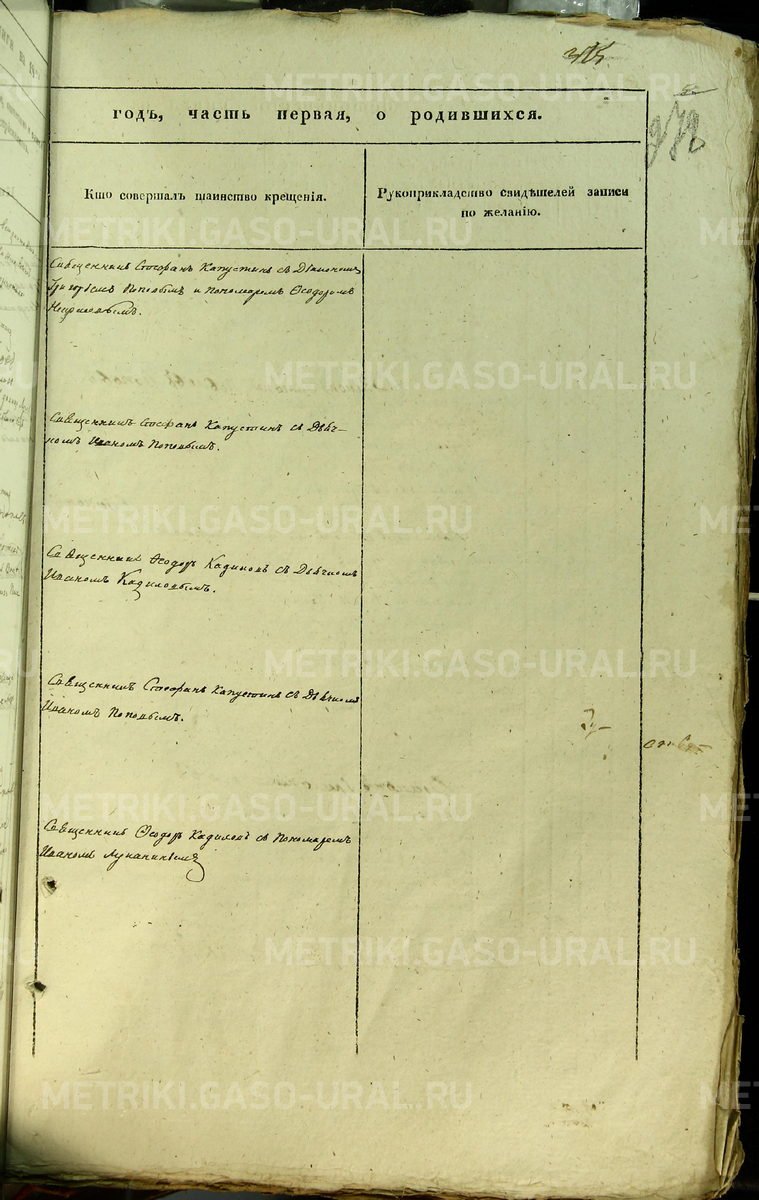 годъ, часть первая, о родившихся.
Кто совершалъ таинство крещенія.
Рукоприкладство свидѣтелей записи
по желанію.
Священникъ Стефанъ Капустинъ съ Діакономъ
Григоріемъ Поповымъ и Пономаремъ Ѳеодоромъ
Священникъ Стефанъ Капустинъ съ Дьяч-
комъ Иваномъ Поповымъ.
Священникъ Ѳеодоръ Кадиловъ съ Дьячкомъ
Иваномъ Кадиловымъ.
Священникъ Стефанъ Капустинъ съ Дьячкомъ
Иваномъ Поповымъ.
Священникъ Ѳеодоръ Кадиловъ съ Пономаремъ
Иваномъ
METRIKI.GASO-URAL.RU